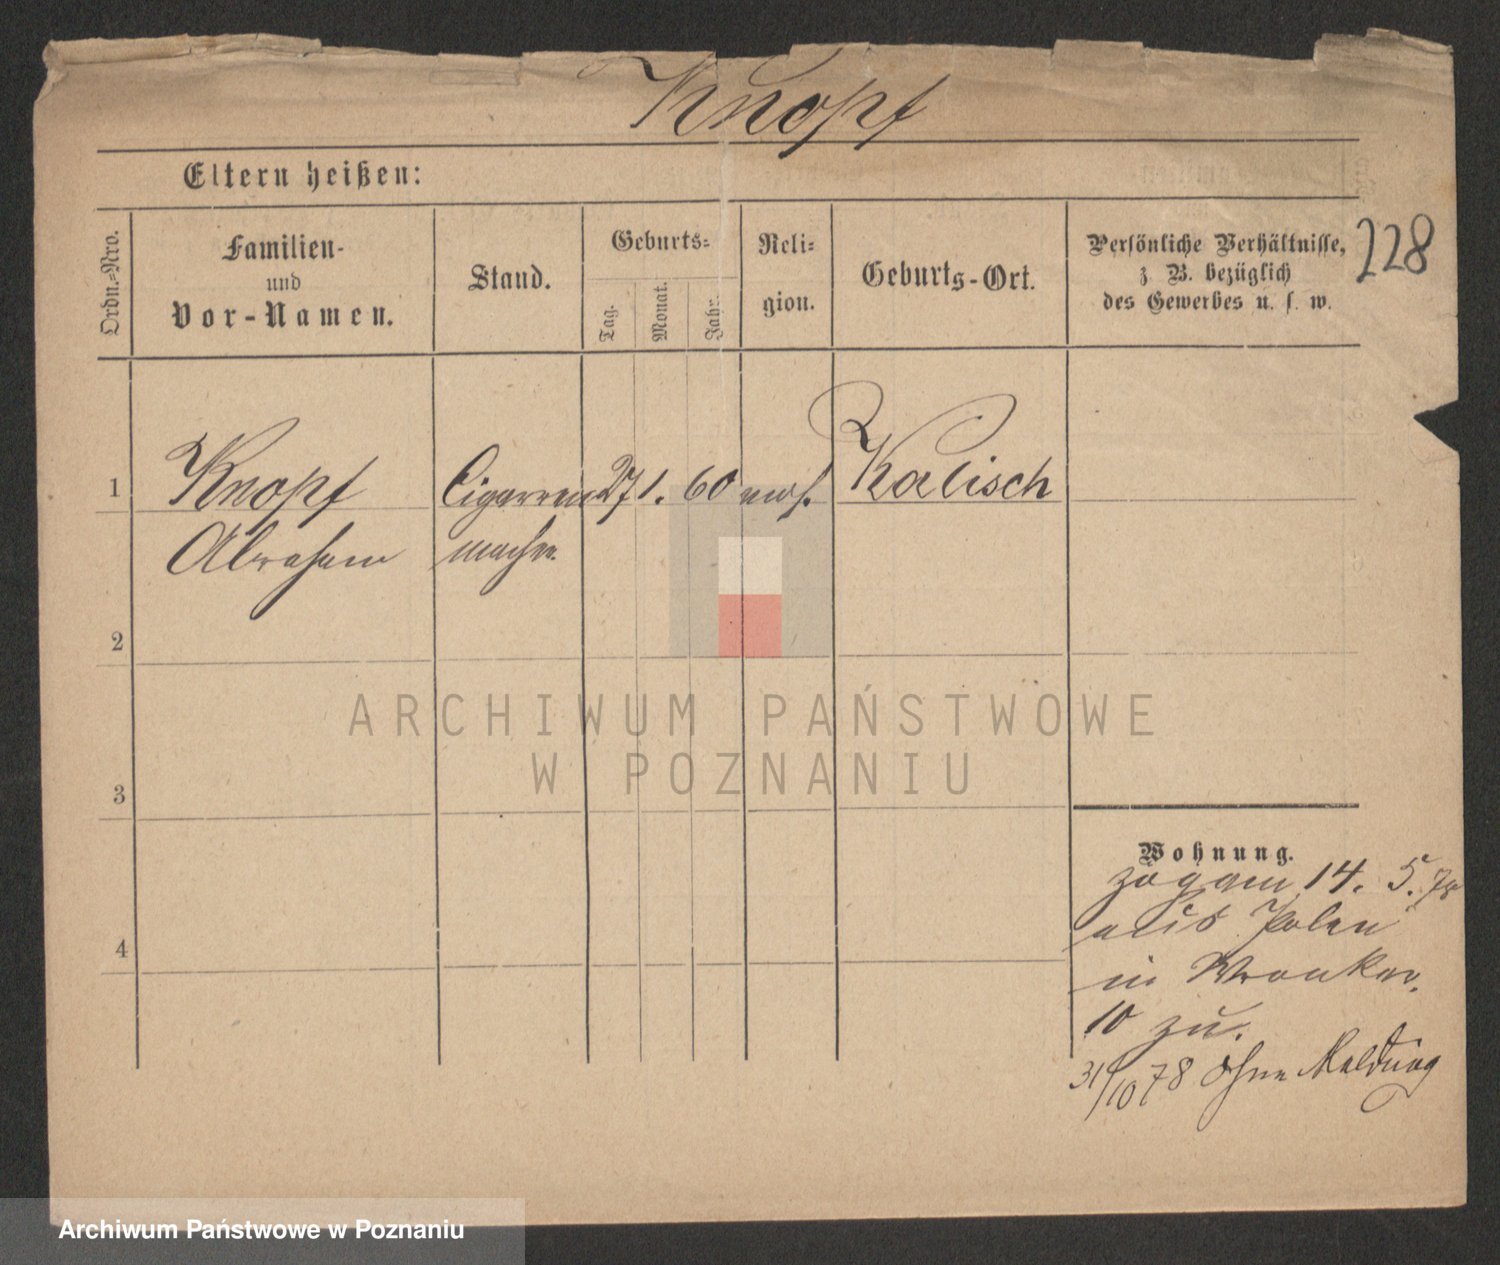 Knopf
Eltern heißen:
Ordn.-Nro.
Familien-
und
Vor-Namen.
Stand.
Geburts-
Tag.
Monat.
Jahr.
Reli-
gion.
Geburts-Ort.
Persönliche Verhältnisse,
z. B. bezüglich
des Gewerbes u. s. w.
228
1 Knopf Cigarren 27 1. 60 mos. Kalisch
Abraham macher
2
3
4
Wohnung.
zog am 14. 5. 78
aus Polen
in Wronker.
10 zu.
31/10 78 ohne Meldung
ARCHIWUM PAŃSTWOWE
W POZNANIU
Archiwum Państwowe w Poznaniu